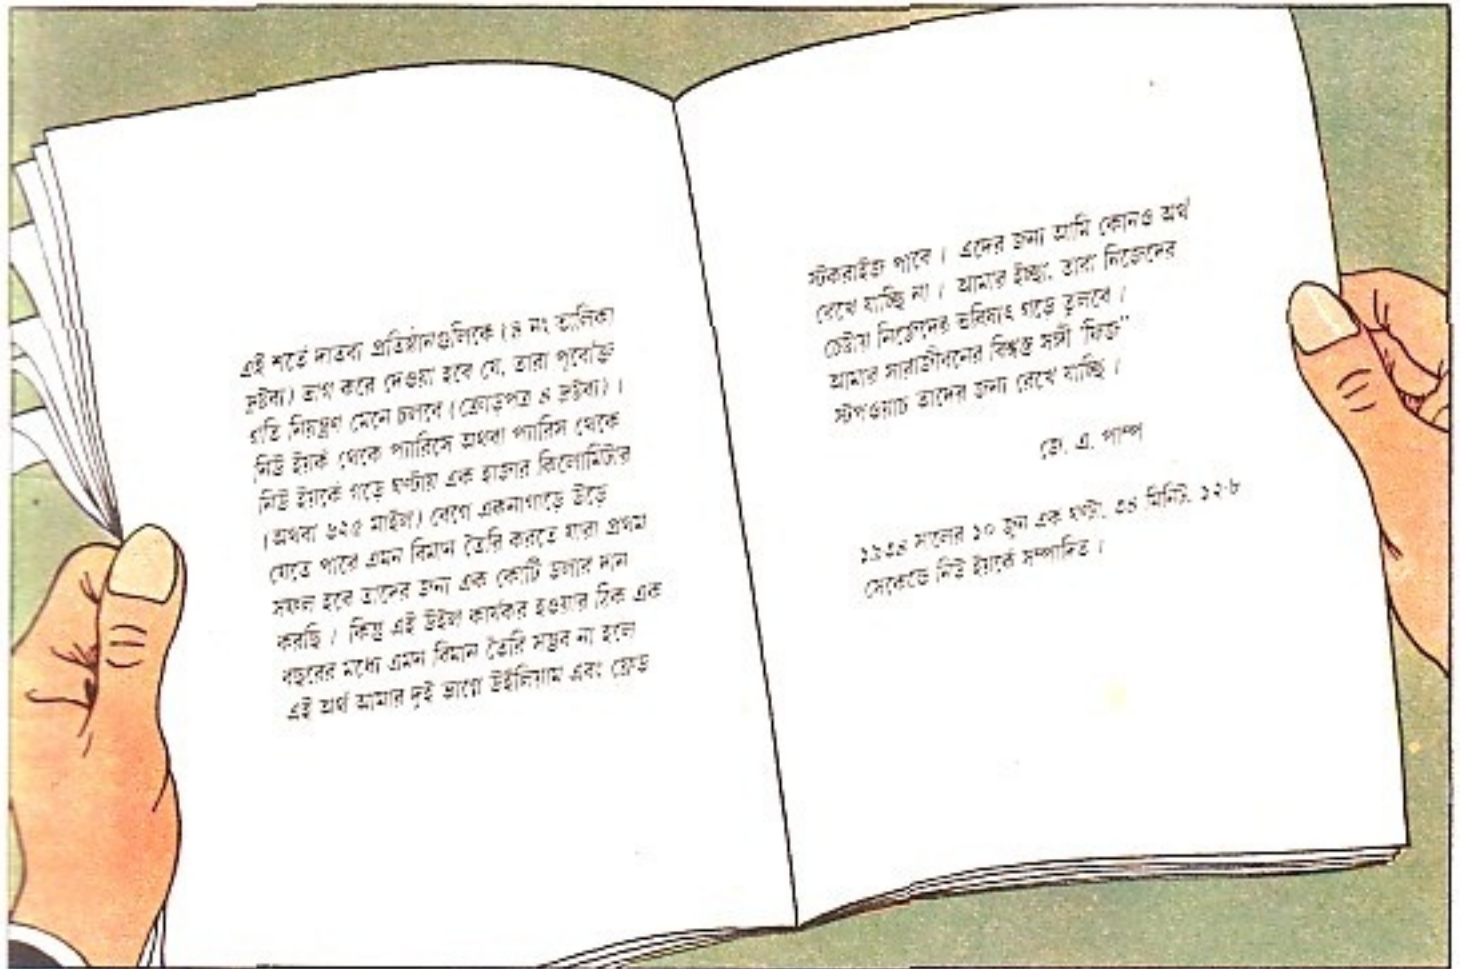 এই শর্তে দাতব্য প্রতিষ্ঠানগুলিকে (৪ নং তালিকা
দ্রষ্টব্য) ভাগ করে দেওয়া হবে যে, তারা পূর্বোক্ত
গতি নিয়ন্ত্রণ মেনে চলবে (ক্রোড়পত্র ৪ দ্রষ্টব্য) ।
নিউ ইয়র্ক থেকে প্যারিসে অথবা প্যারিস থেকে
নিউ ইয়র্কে গড়ে ঘণ্টায় এক হাজার কিলোমিটার
(অথবা ৬২৫ মাইল) বেগে একনাগাড়ে উড়ে
যেতে পারে এমন বিমান তৈরি করতে যারা প্রথম
সফল হবে তাদের জন্য এক কোটি ডলার দান
করছি । কিন্তু এই উইল কার্যকর হওয়ার ঠিক এক
বছরের মধ্যে এমন বিমান তৈরি সম্ভব না হলে
এই অর্থ আমার দুই ভাগ্নে উইলিয়াম এবং ফ্রেড
স্টকরাইজ পাবে । এদের জন্য আমি কোনও অর্থ
রেখে যাচ্ছি না । আমার ইচ্ছা, তারা নিজেদের
চেষ্টায় নিজেদের ভবিষ্যৎ গড়ে তুলবে ।
আমার সারাজীবনের বিশ্বস্ত সঙ্গী
স্টপওয়াচ তাদের জন্য রেখে যাচ্ছি ।
জে. এ. পাম্প
১৯৩৪ সালের ১০ জুন এক ঘণ্টা, ৩৪ মিনিট, ১২·৮
সেকেন্ডে নিউ ইয়র্কে সম্পাদিত ।